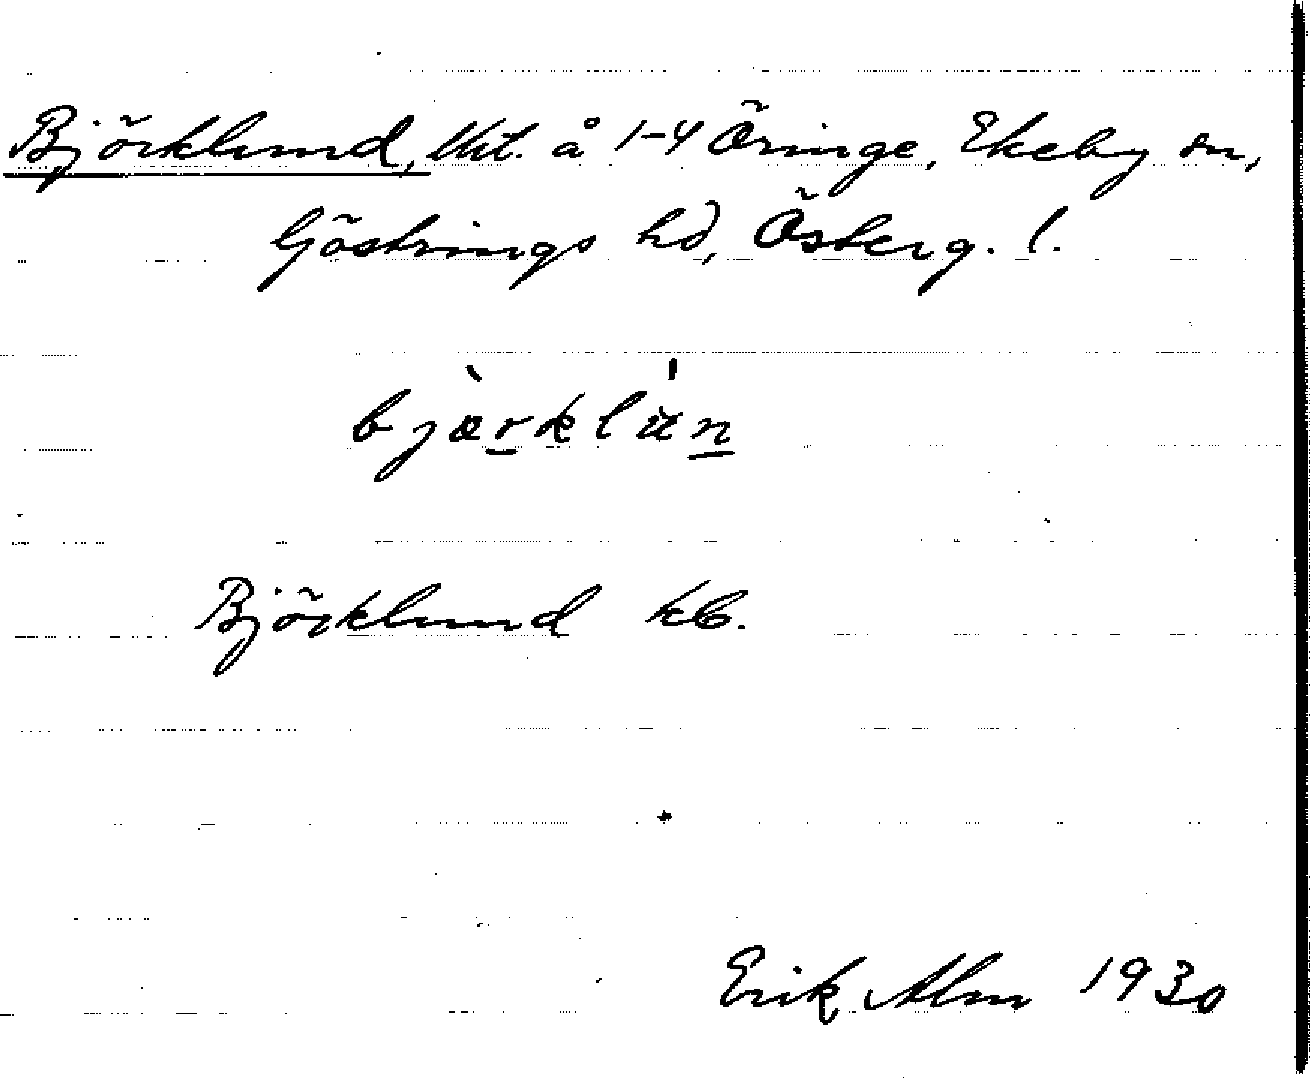 Björklund, lht. å 1-4 Öringe, Ekeby sn,
Göstrings hd, Österg. l.
bjàrklún
Björklund kb.
Erik Alm 1930